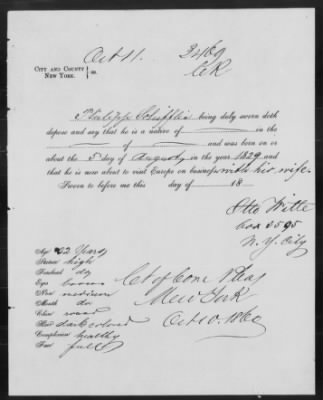 Oct 11.
3469
CITY AND COUNTY
NEW YORK. } ss.
Philipp being duly sworn doth
depose and say that he is a native of in the
of and was born on or
about the 5 day of August in the year 1829 and
that he is now about to visit Europe on business with his wife.
Sworn to before me this day of 18
Otto Witte
box 2595
N. Y. City
Age 32 Years
Stature high
Forehead do
Eyes brown
Nose medium
Mouth do
Chin round
Hair dark colored
Complexion healthy
Face full
Ct of Com Pleas
New York
Oct 10. 1860